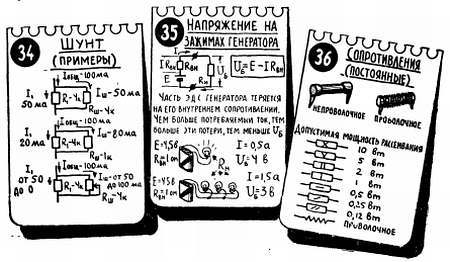 34
ШУНТ
(ПРИМЕРЫ)
Iобщ-100ма
I₁
50ма
R₁-Чк
Iш-50ма
Rш-Чк
Iобщ-100ма
I₁
20ма
R₁-Чк
Iш-80ма
Rш-1к
Iобщ-100ма
I₁
от 50
до 0
R₁-Чк
Iш-от 50
до 100ма
Rш-Чк
35
НАПРЯЖЕНИЕ НА
ЗАЖИМАХ ГЕНЕРАТОРА
I
IRвн
Rвн
E
Uб
Rн
Uб=E-IRвн
ЧАСТЬ ЭДС ГЕНЕРАТОРА ТЕРЯЕТСЯ
НА ЕГО ВНУТРЕННЕМ СОПРОТИВЛЕНИИ.
ЧЕМ БОЛЬШЕ ПОТРЕБЛЯЕМЫЙ ТОК, ТЕМ
БОЛЬШЕ ЭТИ ПОТЕРИ, ТЕМ МЕНЬШЕ Uб
E=4,5в
Rвн=1ом
Rн
I=0,5а
Uб=4в
E=4,5в
Rвн=1ом
I=1,5а
Uб=3в
36
СОПРОТИВЛЕНИЯ
(ПОСТОЯННЫЕ)
НЕПРОВОЛОЧНОЕ
ПРОВОЛОЧНОЕ
ДОПУСТИМАЯ МОЩНОСТЬ РАССЕИВАНИЯ
10 вт
5 вт
2 вт
1 вт
0,5 вт
0,25 вт
0,12 вт
ПРОВОЛОЧНОЕ